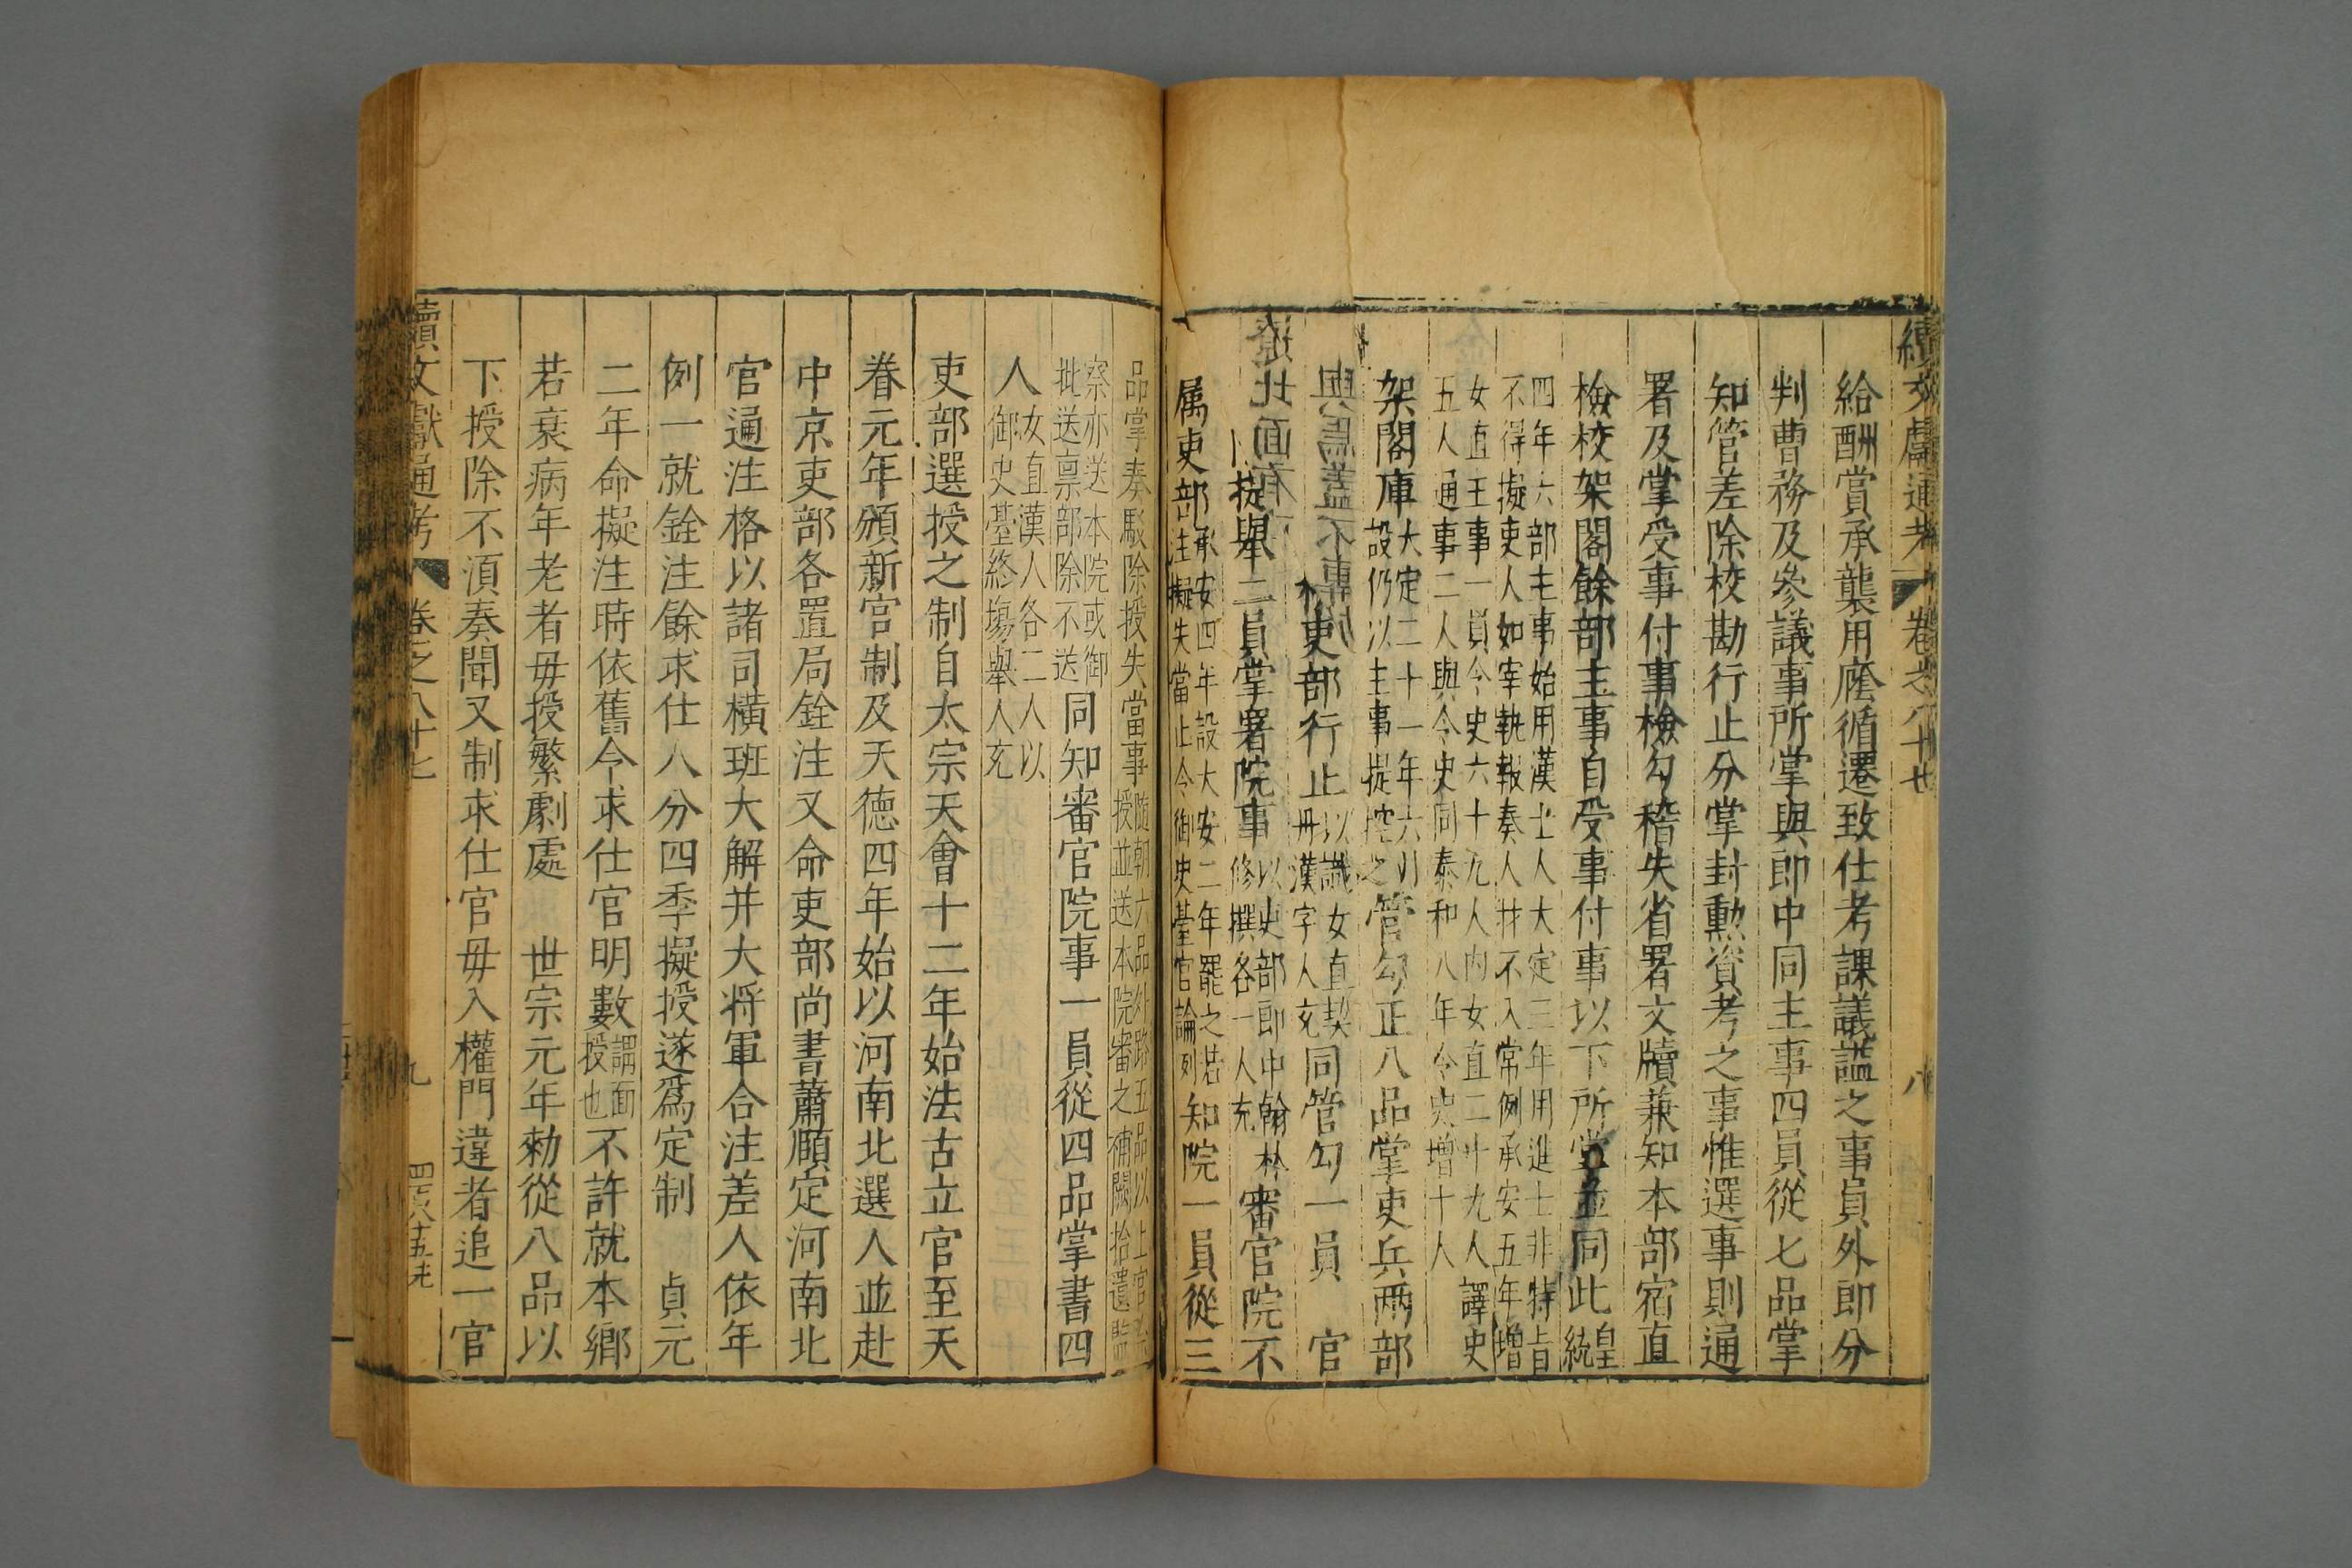 續文獻通考 卷之八十七 八
給酬賞承襲用廕循遷致仕考課議謚之事員外郎分
判曹務及參議事所掌與郎中同主事四員從七品掌
知管差除校勘行止分掌封勳資考之事惟選事則通
署及掌受事付事檢勾稽失省署文牘兼知本部宿直
檢校架閣餘部主事自受事付事以下所掌並同此皇
統
四年六部主事始用漢士人大定三年用進士非特旨
不得擬吏人如宰執報奏人材不入常例承安五年增
女直主事一員令史六十九人內女直二十九人譯史
五人通事二人與令史同泰和八年令史增十人
架閣庫大定二十一年六
設仍以主事提控之管勾正八品掌吏兵兩部
吏部行止以識女直契
丹漢字人充同管勾一員 官
提舉二員掌署院事以吏部郎中翰林
修撰各一人充審官院不
属吏部承安四年設大安二年罷之若
注擬失當止令御史臺官論列知院一員從三
品掌奏駁除授失當事隨朝六品外路五品以上官
授並送本院審之補闕拾遺監
察亦送本院或御
批送禀部除不送同知審官院事一員從四品掌書四
人女直漢人各二人以
御史臺終場舉人充
吏部選授之制自太宗天會十二年始法古立官至天
眷元年頒新官制及天德四年始以河南北選人並赴
中京吏部各置局銓注又命吏部尚書蕭頤定河南北
官通注格以諸司橫班大解并大將軍合注差人依年
例一就銓注餘求仕人分四季擬授遂爲定制 貞元
二年命擬注時依舊令求仕官明數謂面
授也不許就本鄉
若衰病年老者毋授繁劇處 世宗元年勑從八品以
下授除不湏奏聞又制求仕官毋入權門違者追一官
續文獻通考 卷之八十七 九